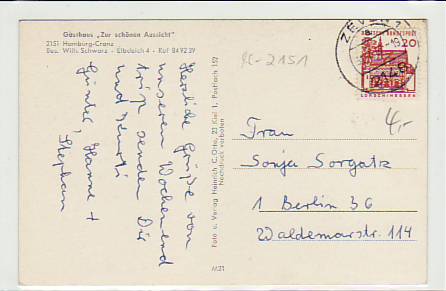 Gästhaus „Zur schönen Aussicht"
2151 Hamburg-Cranz
Bes. Willi Schwarz - Elbdeich 4 - Ruf 849239
RC-2151
ZEVEN
DEUTSCHE BUNDESPOST
20
2148
LORSCH/HESSEN
4,-
Herzliche Grüße von
unserem Wochenend
trip senden Dir
und
Günter, Hanne +
Stephan
Foto u. Verlag Heinrich C. Otto, 23 Kiel 1, Postfach 152
Nachdruck verboten
M21
Frau
Sonja Sorgatz
1 Berlin 36
Waldemarstr. 114